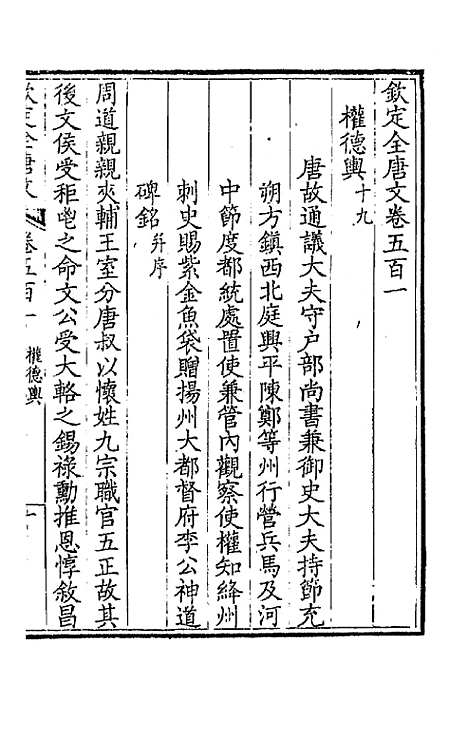 欽定全唐文卷五百一
權德輿十九
唐故通議大夫守户部尚書兼御史大夫持節充
朔方鎮西北庭興平陳鄭等州行營兵馬及河
中節度都統處置使兼管內觀察使權知絳州
刺史賜紫金魚袋贈揚州大都督府李公神道
碑銘并序
周道親親夾輔王室分唐叔以懷姓九宗職官五正故其
後文侯受秬鬯之命文公受大輅之錫祿勳推恩惇敘昌
欽定全唐文 卷五百一 權德輿 一